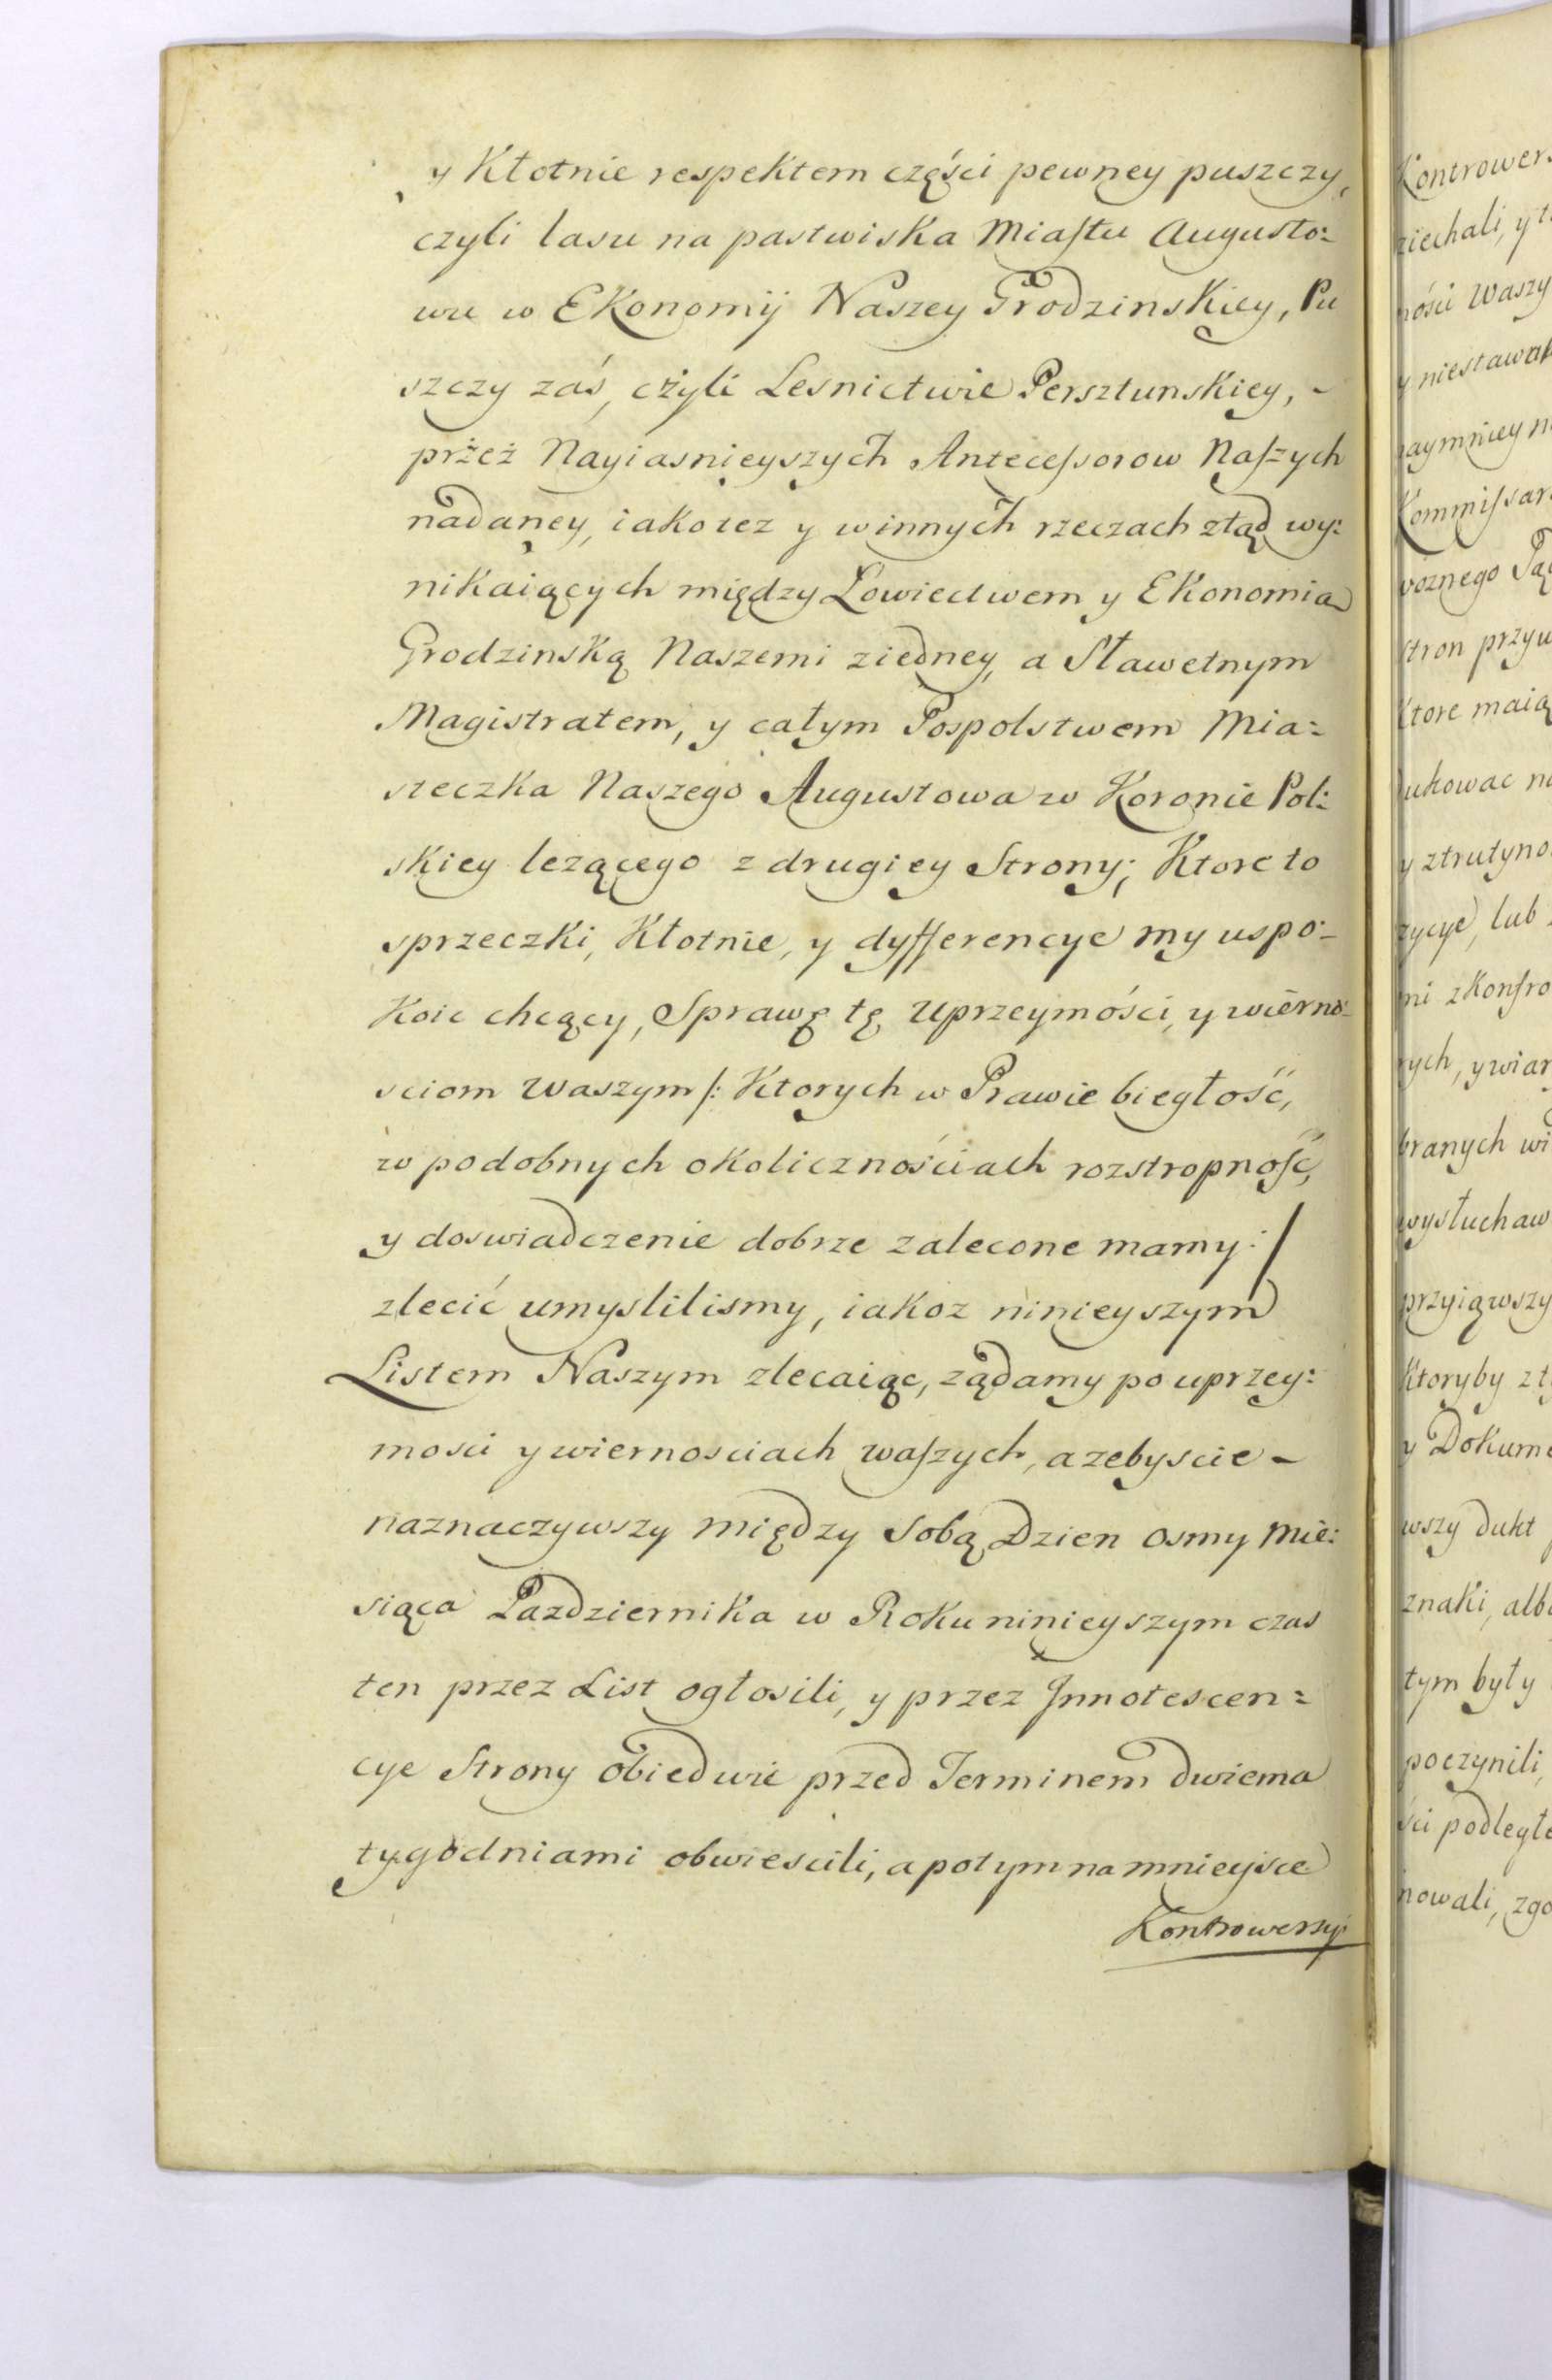 y Kłotnie respektem części pewney puszczy,
czyli lasu na pastwiska Miastu Augusto:
wu w Ekonomij Naszey Grodzinskiey, Pu
szczy zaś, czyli Lesnictwie Persztunskiey, -
przez Nayiasnieyszych Antecessorow Naszych
nadaney, iako tez y w innych rzeczach ztąd wy:
nikaiących między Łowiectwem y Ekonomią
Grodzinską Naszemi ziedney, a Sławetnym
Magistratem, y całym Pospolstwem Mia:
steczka Naszego Augustowa w Koronie Pol:
skiey lezącego z drugiey Strony; Ktore to
sprzeczki, Kłotnie, y dyfferencye my uspo:
koic chcący, Sprawę tę Uprzeymości, y wierno:
sciom Waszym /: Ktorych w Prawie biegłość,
w podobnych okolicznościach rozstropność,
y doswiadczenie dobrze zalecone mamy :/
zlecić umyslilismy, iakoz ninieyszym
Listem Naszym zlecaiąc, ządamy po uprzey:
mosci y wiernosciach waszych, azebyscie -
naznaczywszy między Sobą Dzien osmy Mie:
siąca Pazdziernika w Roku ninieyszym czas
ten przez List ogłosili, y przez Innotescen:
cye Strony obiedwie przed Terminem dwiema
tygodniami obwiescili, a potym na mnieysce
Kontrowersyi
Kontrowers
ziechali, y t
ności Waszy
y niestawa
naymniey n
Kommissar
woznego
stron przyw
Ktore maią
dukowac na
y ztrutyno
zycye, lub
mi zkonfro
rych, y wiar
branych wi
wysłuchaw
przyiąwszy
Ktoryby z t
y Dokume
wszy dukt
znaki, alb
tym były
poczynili,
ści podległ
nowali, zgo